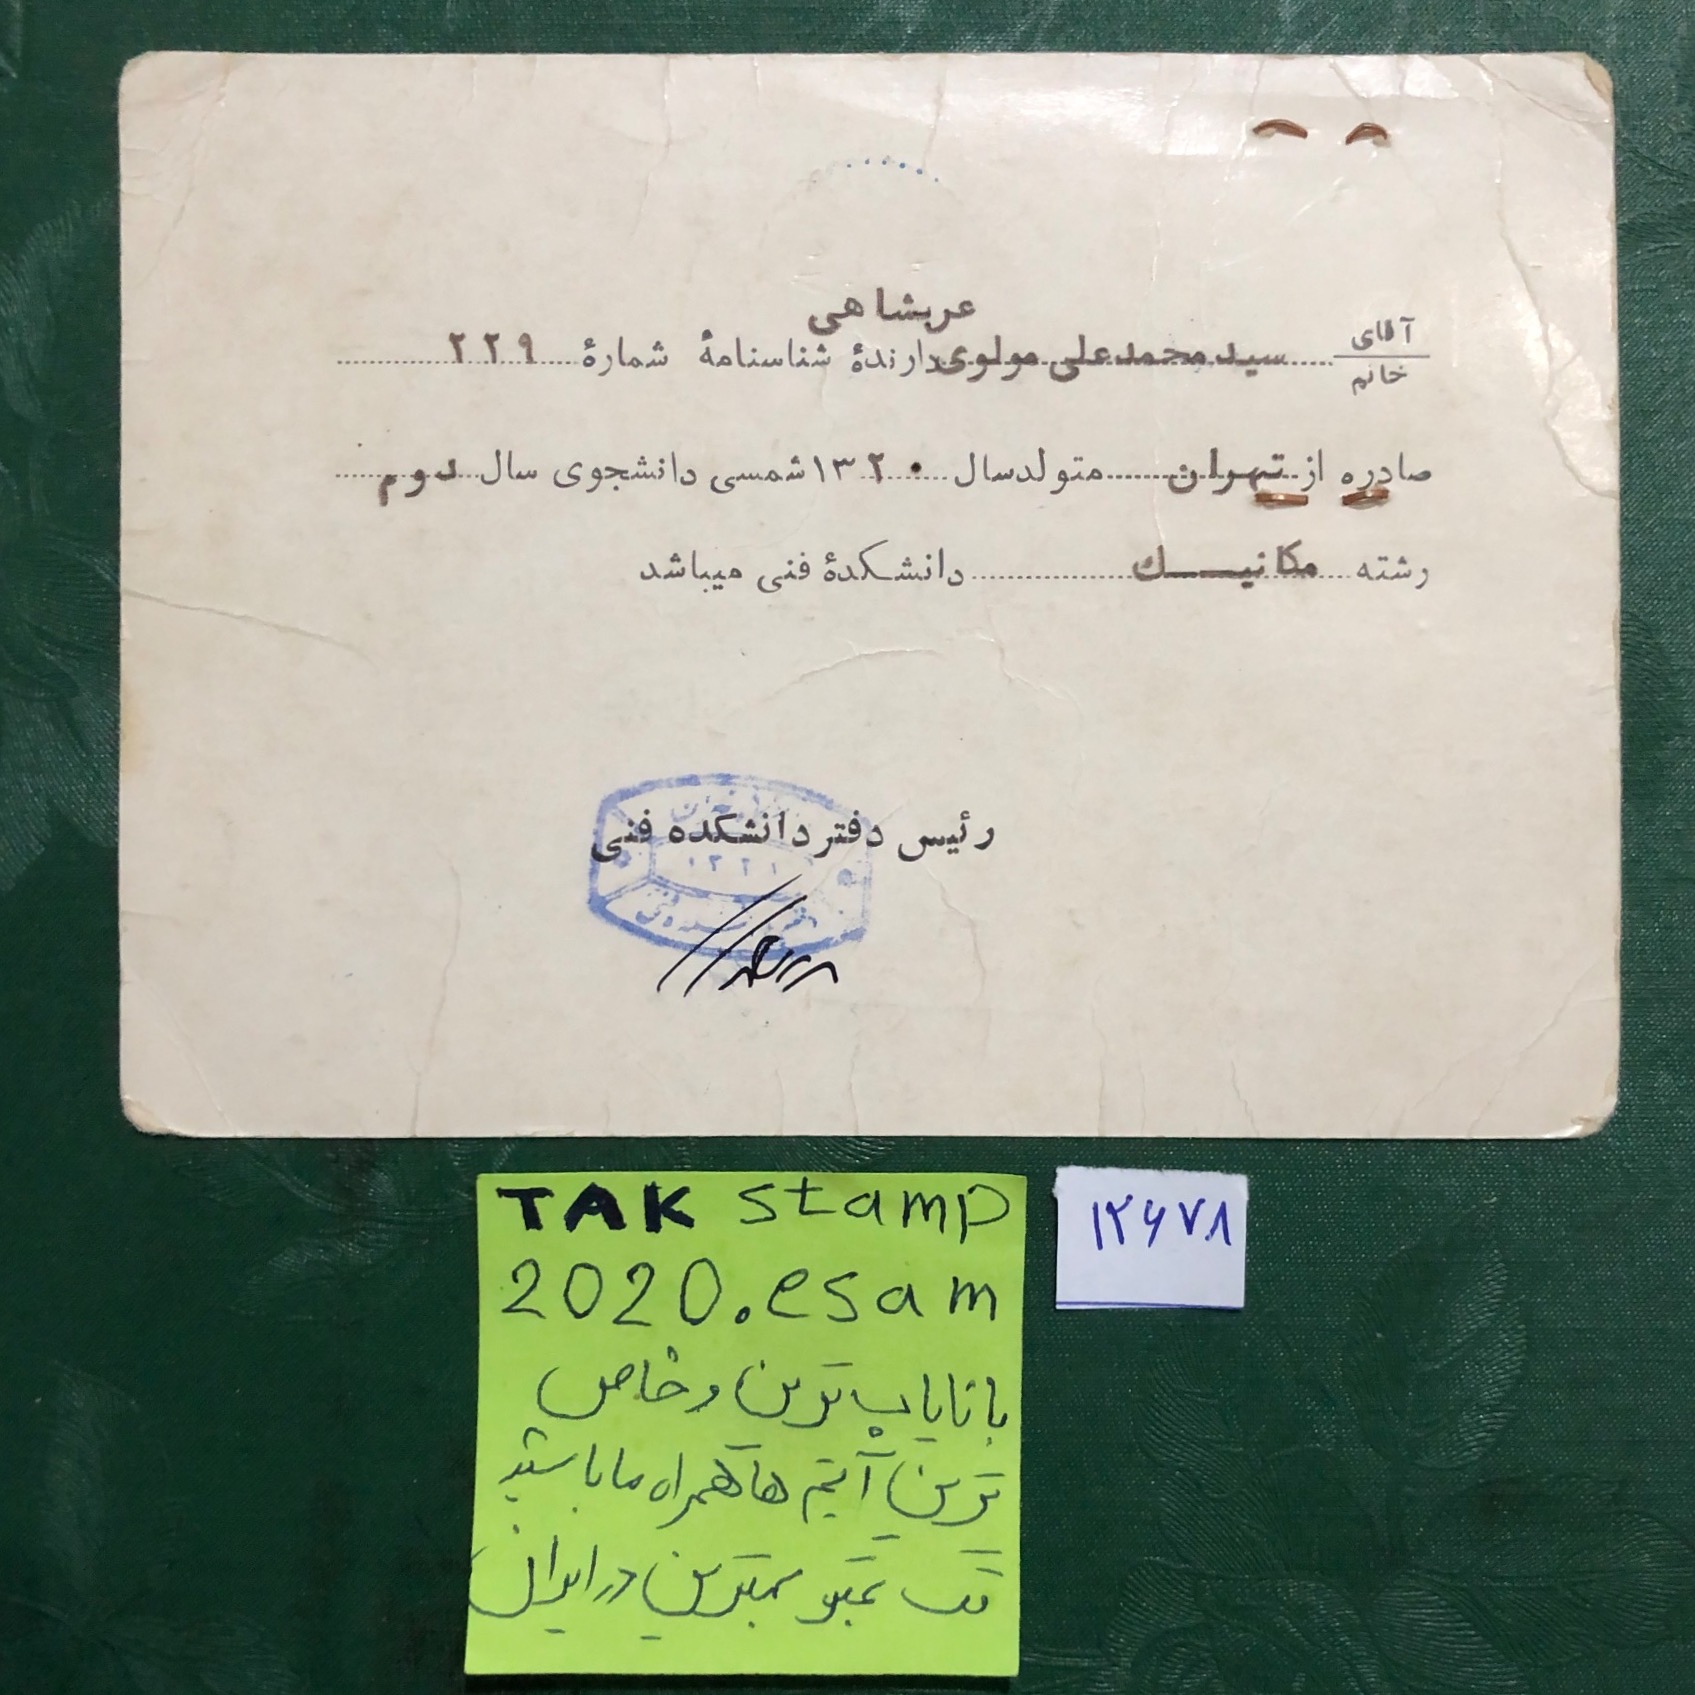 عربشاهی
آقای
خانم
سید محمد علی مولوی دارندهٔ شناسنامهٔ شمارهٔ ۲۲۹
صادره از تهران متولد سال ۱۳۲۰ شمسی دانشجوی سال دوم
رشته مکانیک دانشکدهٔ فنی میباشد
رئیس دفتر دانشکده فنی
TAK stamp
2020.esam
با نایاب ترین و خاص
ترین آیتم ها همراه ما باشید
تک تمبر بهترین در ایران
۱۲۶۷۸